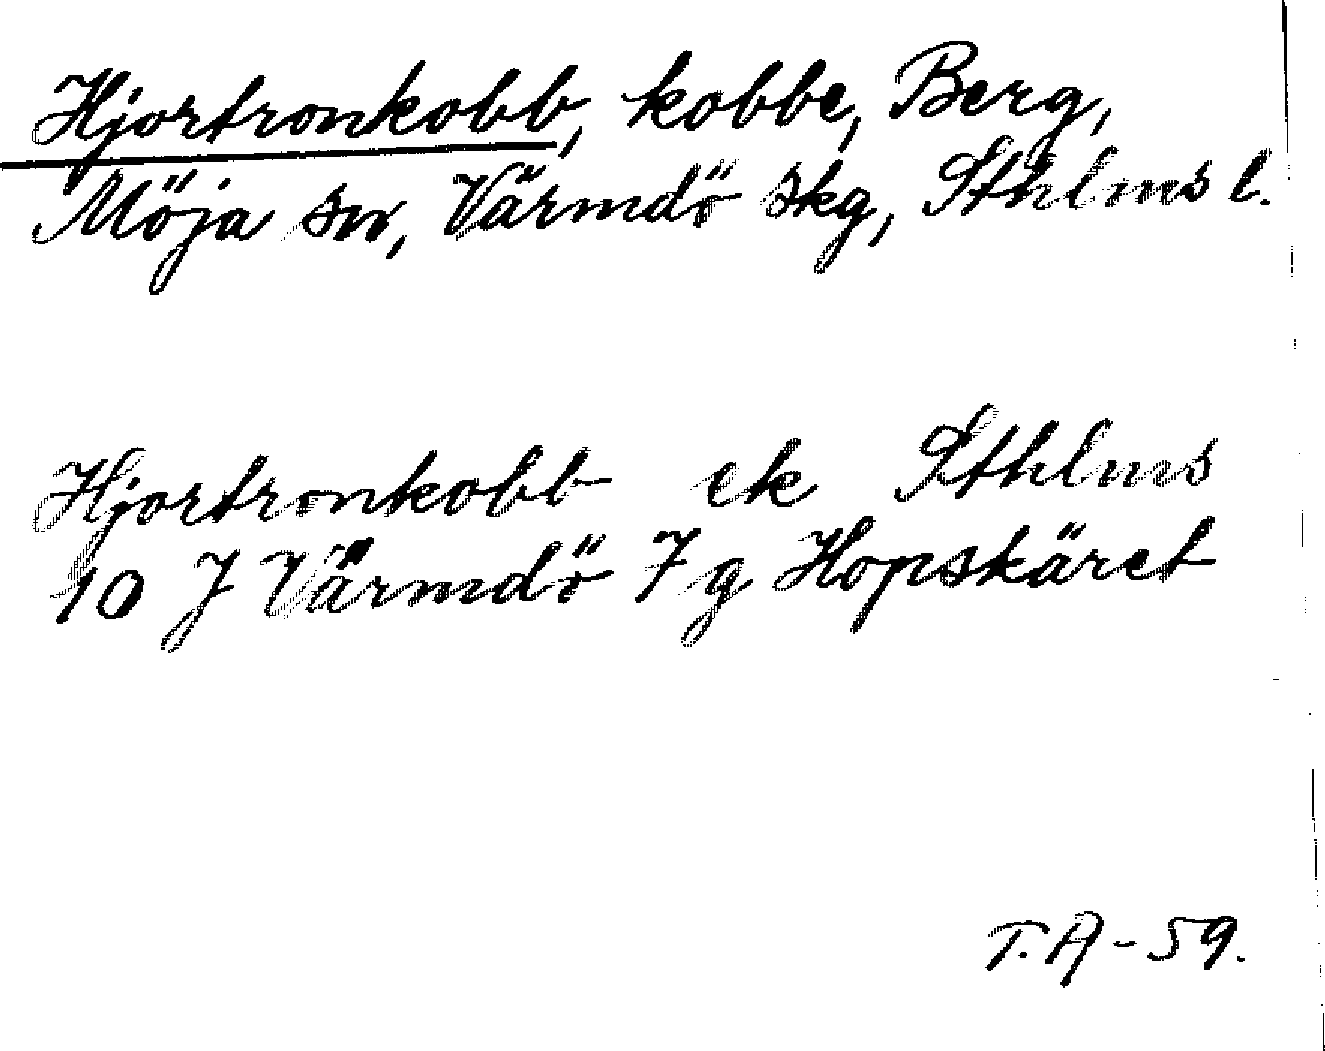 Hjortronkobb, kobbe, Berg,
Möja sn, Värmdö skg, Sthlms l.
Hjortronkobb ek Sthlms
10 J Värmdö 7 g Hopskäret
T.A-59.